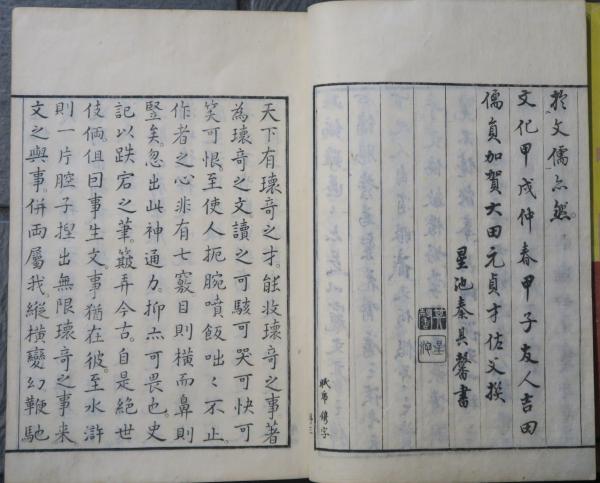 於文儒亦然。
文化甲戌仲春甲子友人吉田
儒員加賀大田元貞才佐父撰
星池秦其馨書
天下有瓌奇之才。能收瓌奇之事著
為瓌奇之文讀之可駭可哭可快可
笑可恨。至使人扼腕噴飯咄々不止。
作者之心非有七竅目則橫而鼻則
竪矣。忽出此神通力。抑亦可畏也。史
記以跌宕之筆。簸弄今古。自是絕世
伎倆。但因事生文。事猶在彼。至水滸
則一片腔子揑出無限瓌奇之事来
文之與事。併兩屬我。縱橫變幻鞭馳